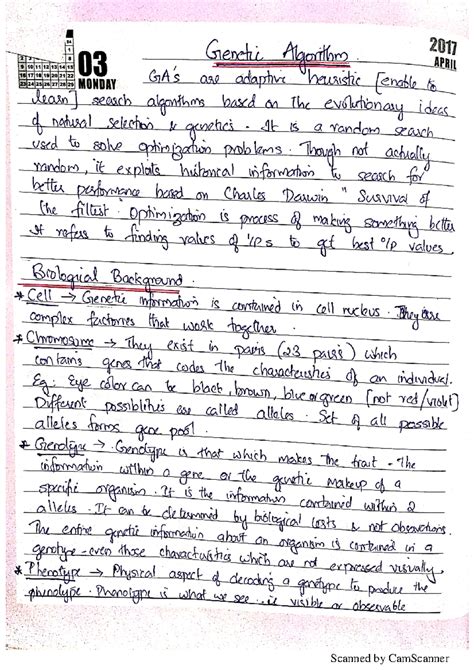 03
MONDAY
2017
APRIL
Genetic Algorithm
GA's are adaptive heuristic [enable to
learn] search algorithms based on the evolutionary ideas
of natural selection & genetics. It is a random search
used to solve optimization problems. Though not actually
random, it exploits historical information to search for
better performance based on Charles Darwin "Survival of
the fittest". Optimization is process of making something better
It refers to finding values of I/Ps to get best O/P values
Biological Background.
* Cell → Genetic information is contained in cell nucleus. They are
complex factories that work together.
* Chromosome → They exist in pairs (23 pairs) which
contains genes that codes the characteristics of an individual.
Eg: Eye color can be black, brown, blue or green [not red/violet]
Different possibilities are called alleles. Set of all possible
alleles forms gene pool.
* Genotype → Genotype is that which makes the trait - The
information within a gene or the genetic makeup of a
specific organism. It is the information contained within 2
alleles. It can be determined by biological tests & not observations.
The entire genetic information about an organism is contained in a
genotype - even those characteristics which are not expressed visually.
* Phenotype → Physical aspect of decoding a genotype to produce the
phenotype. Phenotype is what we see. is visible or observable
Scanned by CamScanner